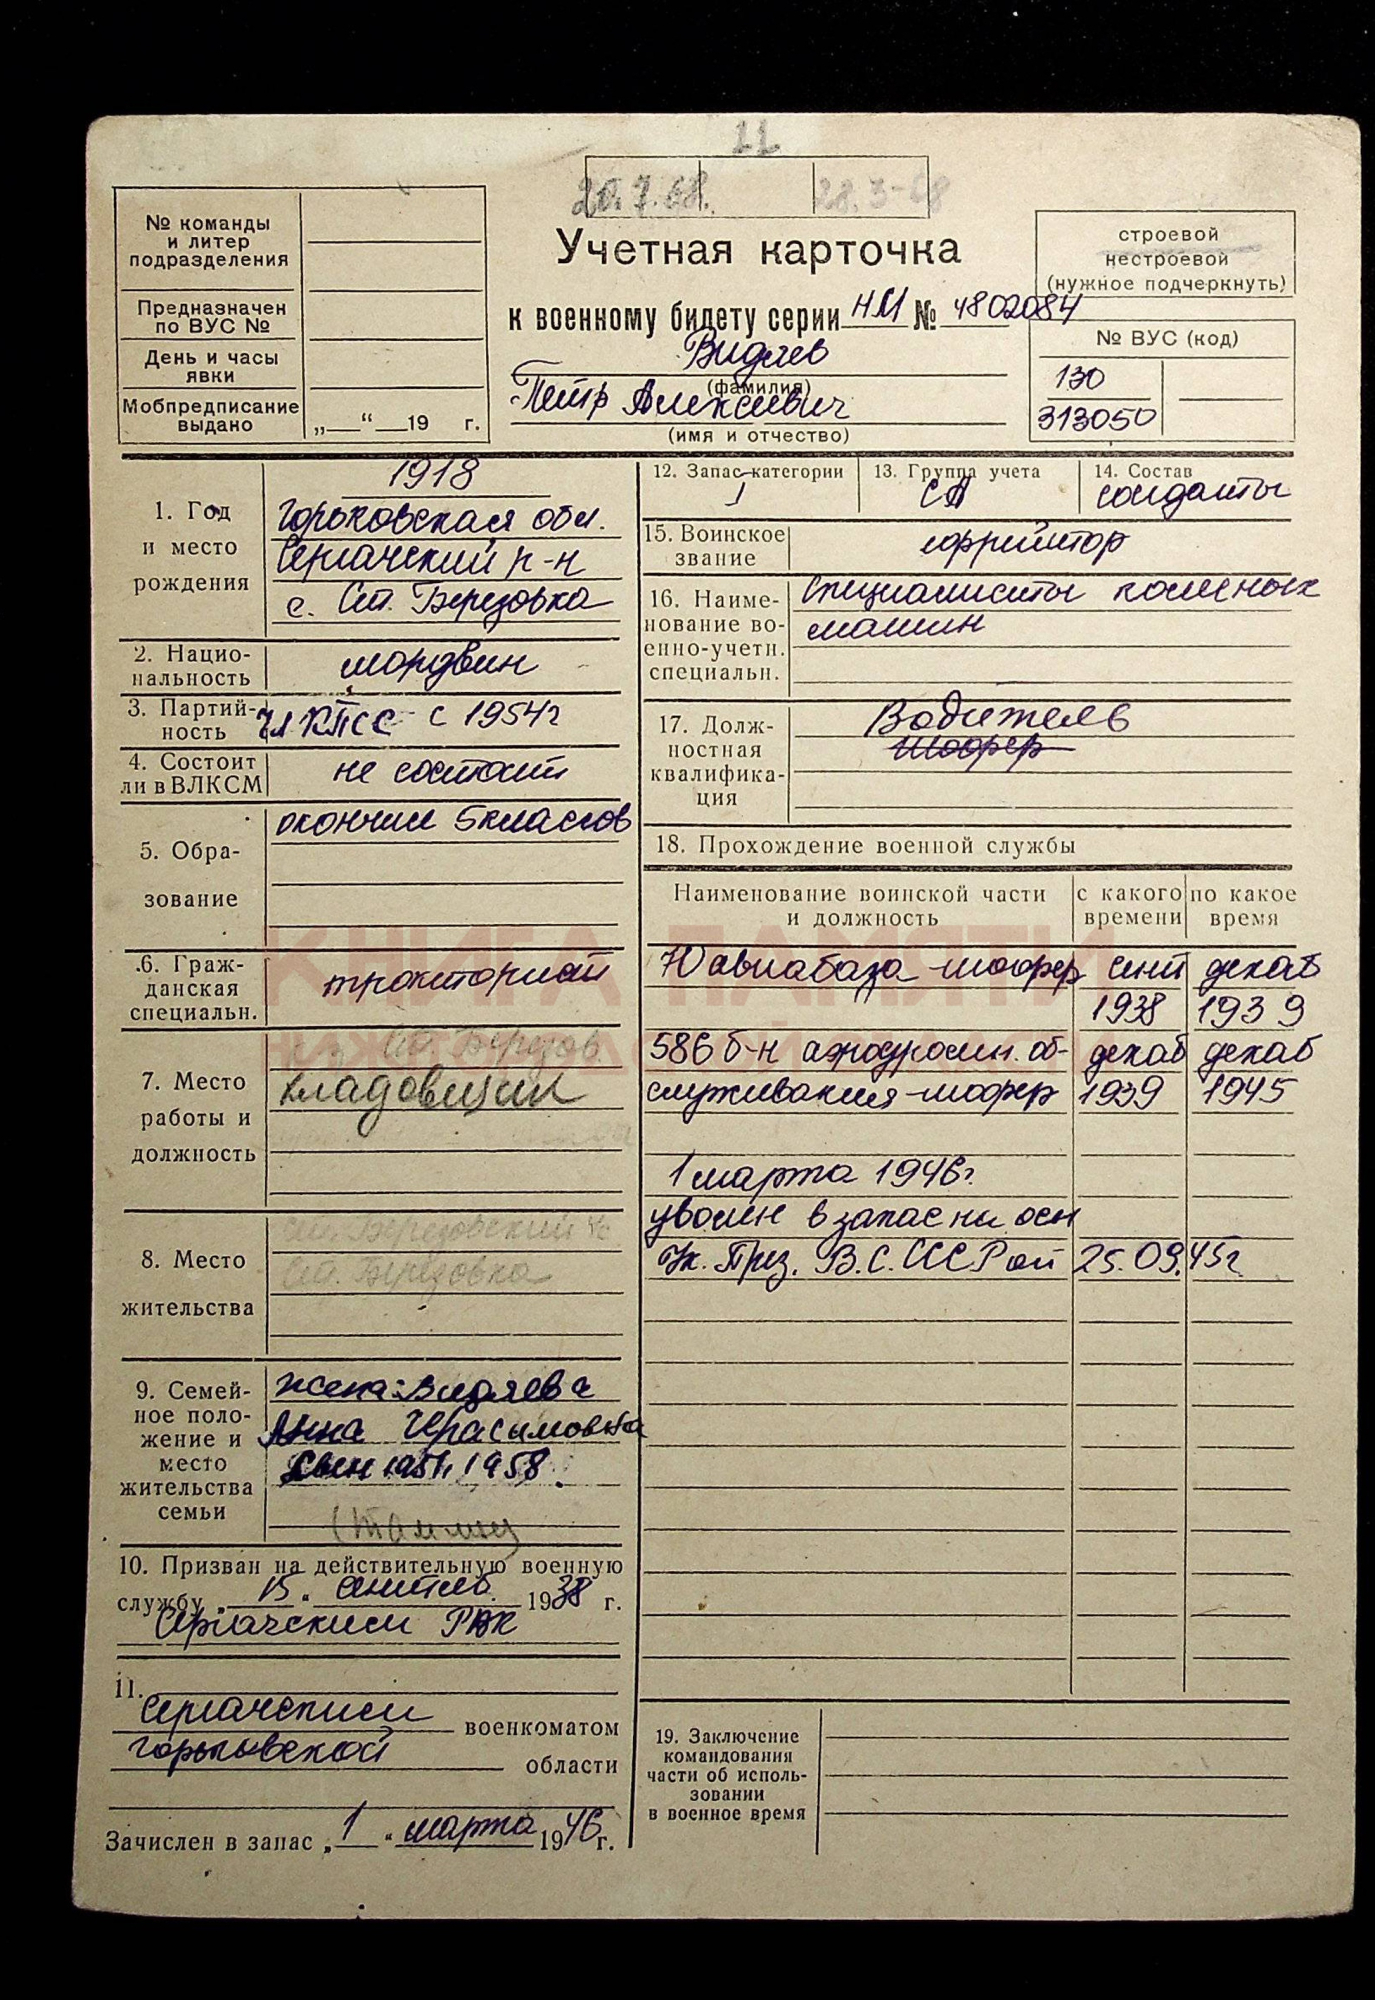 11
20.7.68.
28.3-68
№ команды
и литер
подразделения
Предназначен
по ВУС №
День и часы
явки
Мобпредписание
выдано
„ “ 19 г.
Учетная карточка
к военному билету серии НМ № 4802084
Видяев
(фамилия)
Петр Алексеевич
(имя и отчество)
строевой
нестроевой
(нужное подчеркнуть)
№ ВУС (код)
130
313050
1. Год
и место
рождения
1918
Горьковская обл.
Сергачский р-н
с. Ст. Березовка
2. Нацио-
нальность
мордвин
3. Партий-
ность
Чл КПСС с 1954г
4. Состоит
ли в ВЛКСМ
не состоит
5. Обра-
зование
окончил 5классов
6. Граж-
данская
специальн.
тракторист
7. Место
работы и
должность
Ст. Березов
кладовщик
8. Место
жительства
Ст. Березовский
Ст. Березовка
9. Семей-
ное поло-
жение и
место
жительства
семьи
жена: Видяева
Анна Герасимовна
сын 1951, 1958.
10. Призван на действительную военную
службу „15“ сентяб 1938 г.
Сергачским РВК
11.
Сергачским военкоматом
Горьковской области
Зачислен в запас „1“ марта 1946г.
12. Запас категории
I
13. Группа учета
СА
14. Состав
солдаты
15. Воинское
звание
ефрейтор
16. Наиме-
нование во-
енно-учетн.
специальн.
специалисты колесных
машин
17. Долж-
ностная
квалифика-
ция
Водитель
шофер
18. Прохождение военной службы
Наименование воинской части
и должность
с какого
времени
по какое
время
70 авиабаза-шофер сент декаб
1938 1939
586 б-н аэродромн. об- декаб декаб
служивания-шофер 1939 1945
1 марта 1946г.
уволен в запас на осн
Ук. През. В.С. СССР от 25.09.45г
19. Заключение
командования
части об исполь-
зовании
в военное время
КНИГА ПАМЯТИ
НИЖЕГОРОДСКОЙ ОБЛАСТИ